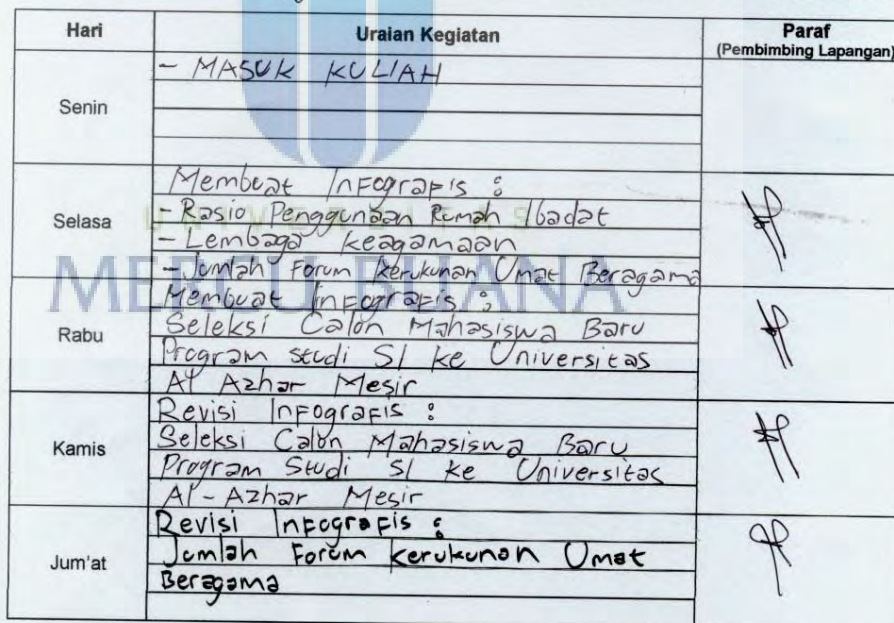 Hari Uraian Kegiatan Paraf
(Pembimbing Lapangan)
Senin
- MASUK KULIAH
Selasa
Membuat Infografis :
- Rasio Penggunaan Rumah Ibadat
- Lembaga keagamaan
- Jumlah Forum Kerukunan Umat Beragama
UNIVERSITAS
MERCU BUANA
Rabu
Membuat Infografis :
Seleksi Calon Mahasiswa Baru
Program studi S1 ke Universitas
Al Azhar Mesir
Kamis
Revisi Infografis :
Seleksi Calon Mahasiswa Baru
Program Studi S1 ke Universitas
Al-Azhar Mesir
Jum'at
Revisi Infografis :
Jumlah Forum Kerukunan Umat
Beragama